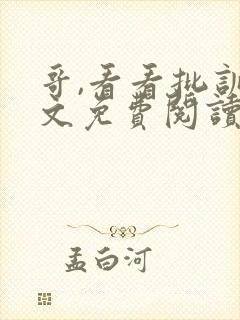 哥,看看批訓
文免費閱讀
孟白河